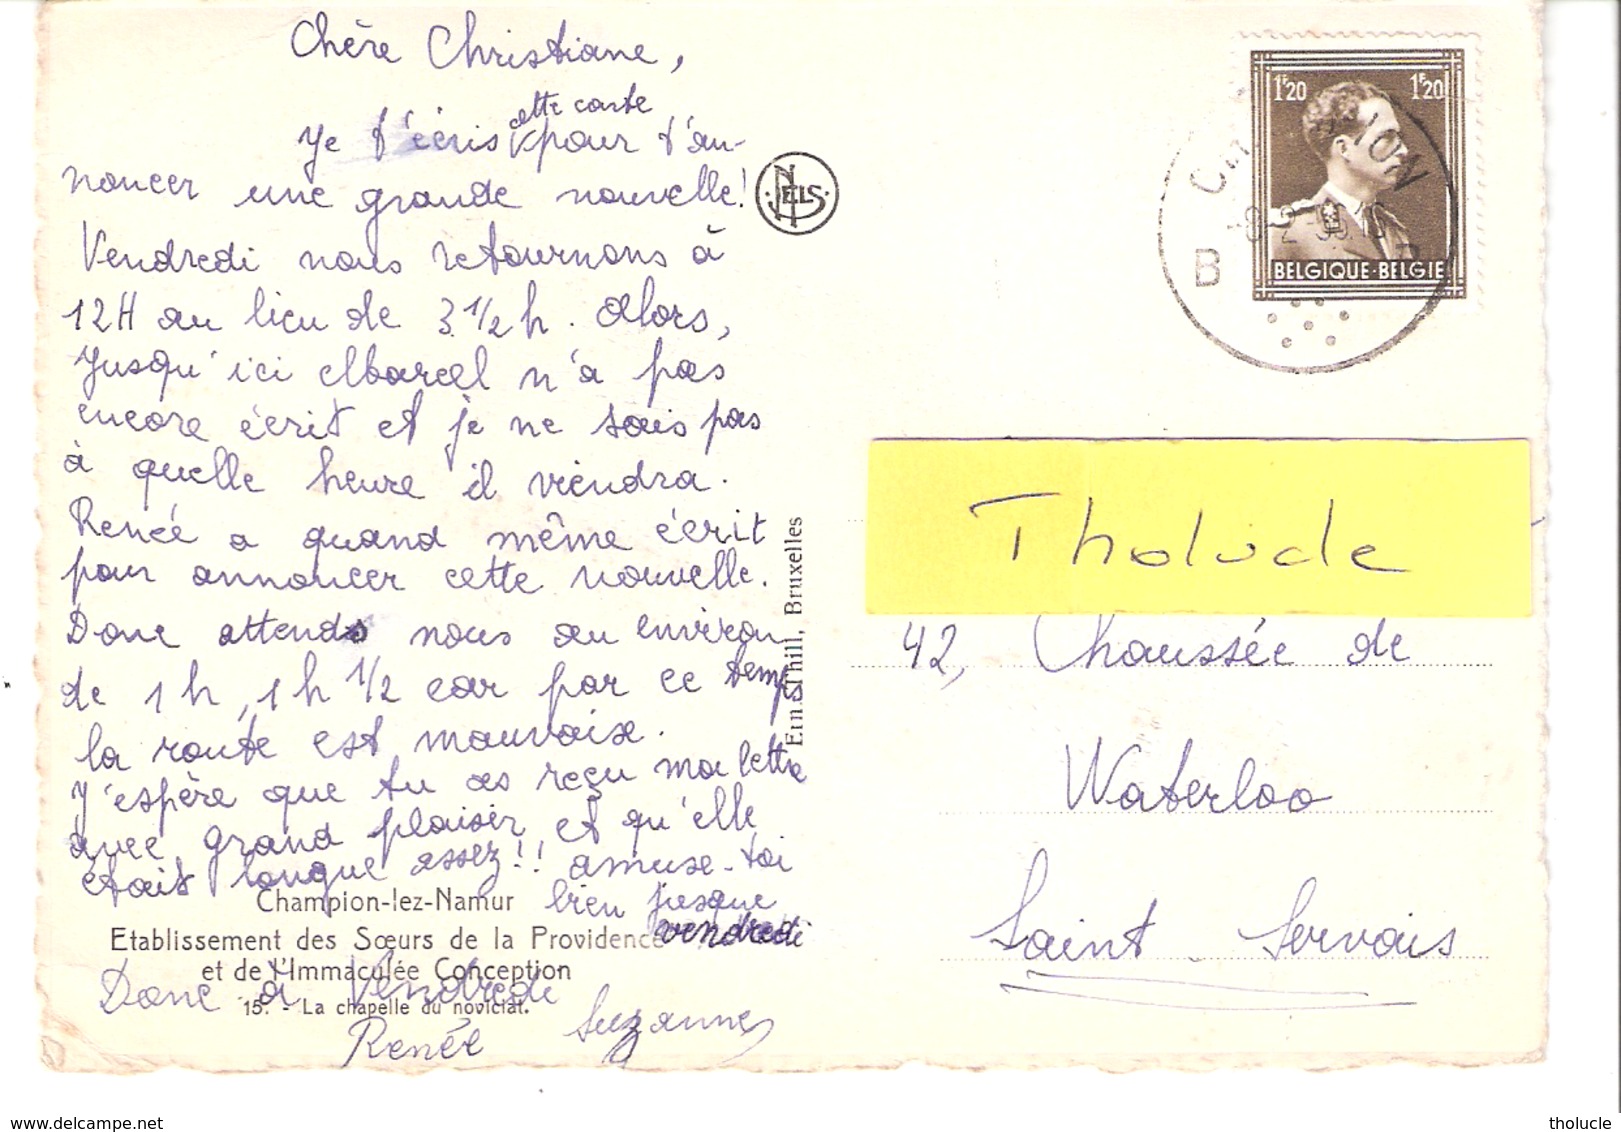 Chère Christiane,
cette carte
Je t'écris pour t'an-
noncer une grande nouvelle!
Vendredi nous retournons à
12H au lieu de 3 1/2 h. Alors,
Jusqu'ici Marcel n'a pas
encore écrit et je ne sais pas
à quelle heure il viendra.
Renée a quand même écrit
pour annoncer cette nouvelle.
Donc attends nous au environ
de 1 h, 1 h 1/2 car par ce temps
la route est mauvaise.
J'espère que tu as reçu ma lettre
avec grand plaisir et qu'elle
était longue assez!! amuse-toi
bien jusque
vendredi
Donc à Vendredi
Renée Suzanne
Champion-lez-Namur
Etablissement des Sœurs de la Providence
et de l'Immaculée Conception
15. - La chapelle du noviciat.
NELS
Ern. Thill, Bruxelles
1F20 1F20
BELGIQUE-BELGIE
B
Tholucle
42, Chaussée de
Waterloo
Saint-Servais
https://www.delcampe.net
tholucle